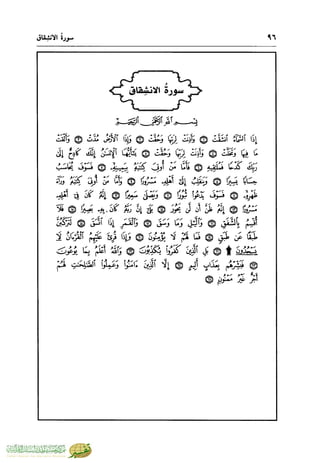 ٩٦ سورة الانشقاق
سورة الانشقاق
بسم الله الرحمن الرحيم
إذا السماء انشقت ١ وأذنت لربها وحقت ٢ وإذا الأرض مدت ٣ وألقت
ما فيها وتخلت ٤ وأذنت لربها وحقت ٥ يا أيها الإنسان إنك كادح إلى
ربك كدحا فملاقيه ٦ فأما من أوتي كتابه بيمينه ٧ فسوف يحاسب
حسابا يسيرا ٨ وينقلب إلى أهله مسرورا ٩ وأما من أوتي كتابه وراء
ظهره ١٠ فسوف يدعوا ثبورا ١١ ويصلى سعيرا ١٢ إنه كان في أهله
مسرورا ١٣ إنه ظن أن لن يحور ١٤ بلى إن ربه كان به بصيرا ١٥ فلا
أقسم بالشفق ١٦ والليل وما وسق ١٧ والقمر إذا اتسق ١٨ لتركبن
طبقا عن طبق ١٩ فما لهم لا يؤمنون ٢٠ وإذا قرئ عليهم القرآن لا
يسجدون ٢١ بل الذين كفروا يكذبون ٢٢ والله أعلم بما يوعون
٢٣ فبشرهم بعذاب أليم ٢٤ إلا الذين آمنوا وعملوا الصالحات لهم
أجر غير ممنون ٢٥